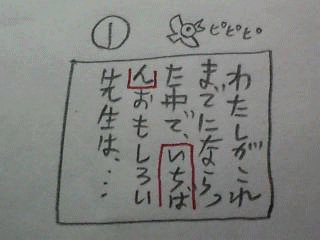 ①
ピピピピ
わたしがこれ
までにならっ
た中で、いちば
んおもしろい
先生は、…